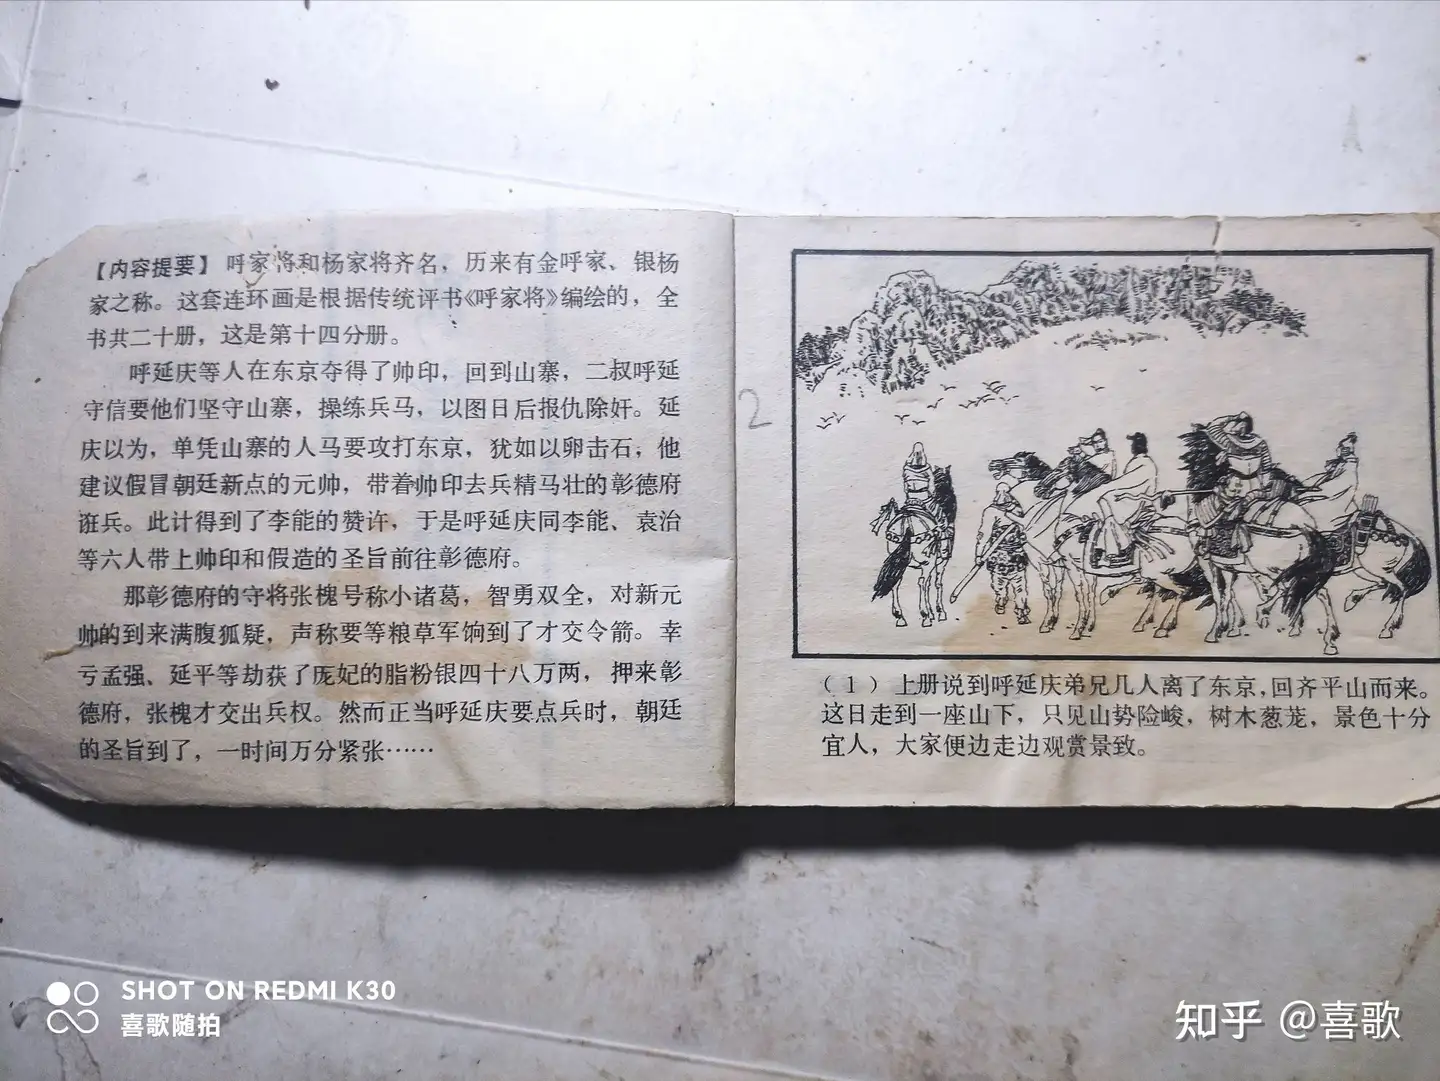 【内容提要】 呼家将和杨家将齐名，历来有金呼家、银杨
家之称。这套连环画是根据传统评书《呼家将》编绘的，全
书共二十册，这是第十四分册。
呼延庆等人在东京夺得了帅印，回到山寨，二叔呼延
守信要他们坚守山寨，操练兵马，以图日后报仇除奸。延
庆以为，单凭山寨的人马要攻打东京，犹如以卵击石；他
建议假冒朝廷新点的元帅，带着帅印去兵精马壮的彰德府
诳兵。此计得到了李能的赞许，于是呼延庆同李能、袁治
等六人带上帅印和假造的圣旨前往彰德府。
那彰德府的守将张槐号称小诸葛，智勇双全，对新元
帅的到来满腹狐疑，声称要等粮草军饷到了才交令箭。幸
亏孟强、延平等劫获了庞妃的脂粉银四十八万两，押来彰
德府，张槐才交出兵权。然而正当呼延庆要点兵时，朝廷
的圣旨到了，一时间万分紧张……
2
（1）上册说到呼延庆弟兄几人离了东京，回齐平山而来。
这日走到一座山下，只见山势险峻，树木葱茏，景色十分
宜人，大家便边走边观赏景致。
SHOT ON REDMI K30
喜歌随拍
知乎 @喜歌